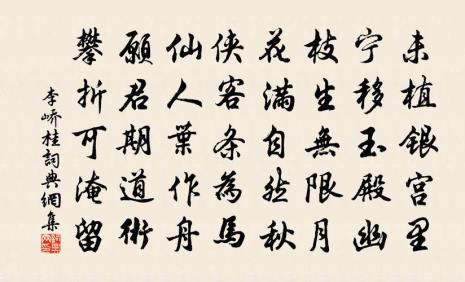 未植银宫里
宁移玉殿幽
枝生無限月
花满自然秋
侠客条為馬
仙人葉作舟
願君期道術
攀折可淹留
李峤桂詞典網集